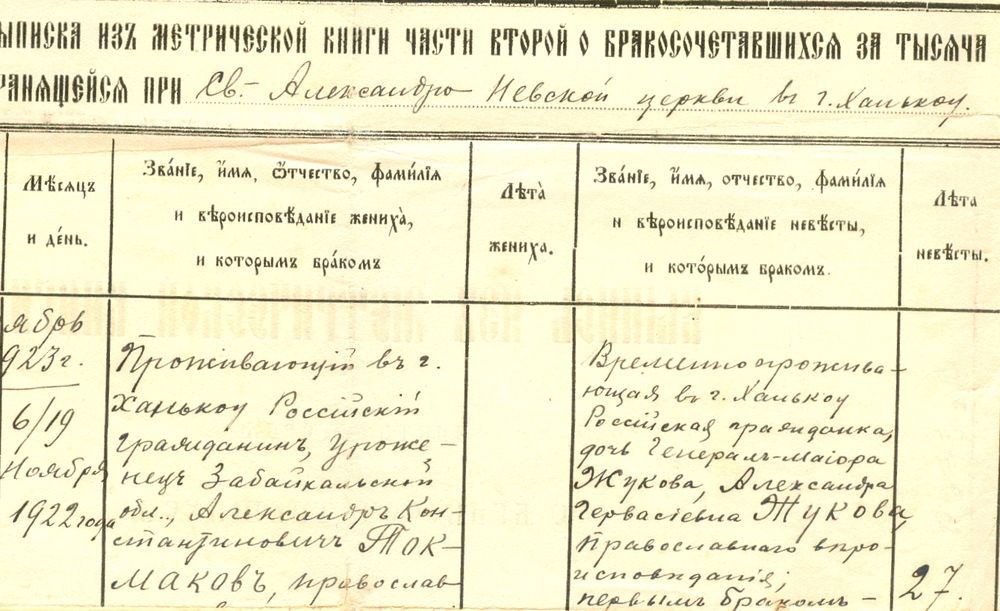 ЫПИСКА ИЗЪ МЕТРИЧЕСКОЙ КНИГИ ЧАСТИ ВТОРОЙ О БРАКОСОЧЕТАВШИХСЯ ЗА ТЫСЯЧА
РАНЯЩЕЙСЯ ПРИ Св.- Александро Невской церкви въ г. Ханькоу.
Мѣсяцъ
и де́нь.
Зва́нїе, и́мя, ѿтчество, фами́лїя
и вѣроисповѣ́данїе жениха̀,
и которымъ бра́комъ
Лѣта̀
жениха.
Зва́нїе, и́мя, отчество, фами́лїя
и вѣроисповѣ́данїе невѣ́сты,
и кото́рымъ бракомъ.
Лѣта
невѣ́сты.
ябрь
923 г.
6/19
Ноября
1922 года
Проживающій въ г.
Ханькоу Россійскій
гражданинъ, уроже-
нецъ Забайкальской
обл., Александръ Кон-
стантиновичъ ТОК-
МАКОВЪ, православ
Временно прожива-
ющая въ г. Ханькоу
Россійская гражданка,
дочь Генералъ-Маіора
Жукова, Александра
Гервасіевна ЖУКОВА,
православнаго вѣро-
исповѣданія;
первымъ бракомъ-
27.